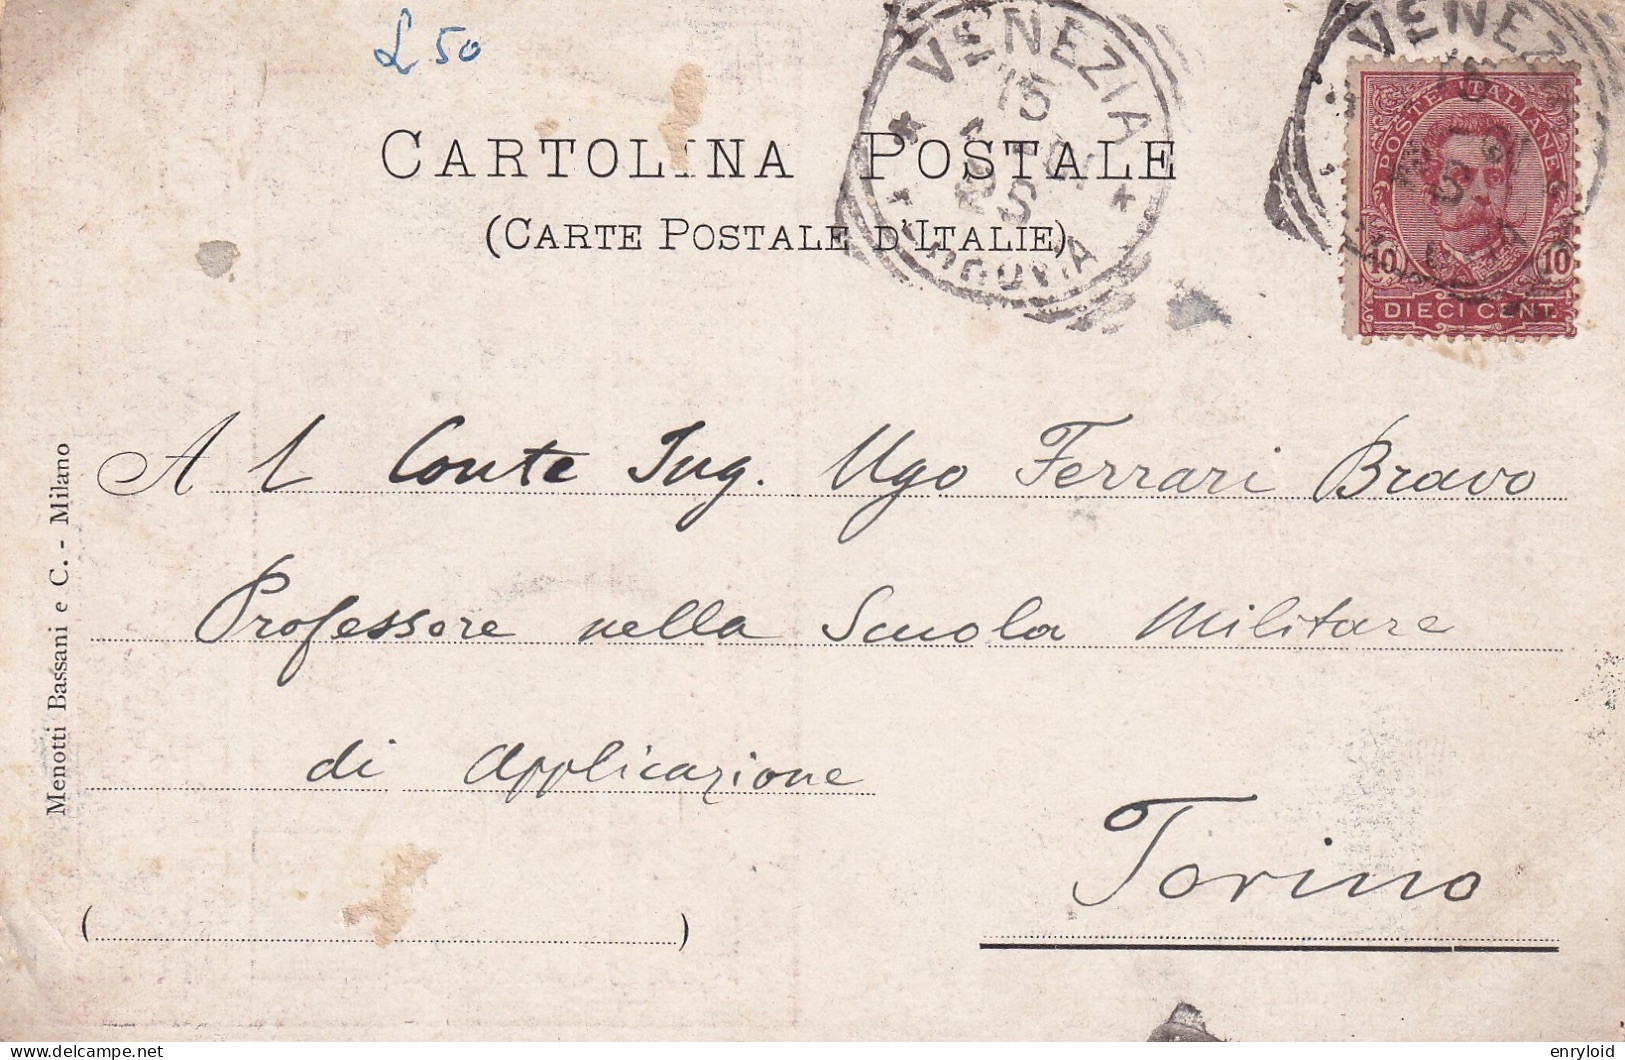 £ 50
VENEZIA
15
CARTOLINA POSTALE
(CARTE POSTALE D'ITALIE)
VENEZIA
15
POSTE ITALIANE
10 10
DIECI CENT.
Al Conte Ing. Ugo Ferrari Bravo
Professore nella Scuola Militare
di Applicazione
Torino
( )
Menotti Bassani e C. - Milano
delcampe.net
enryloid